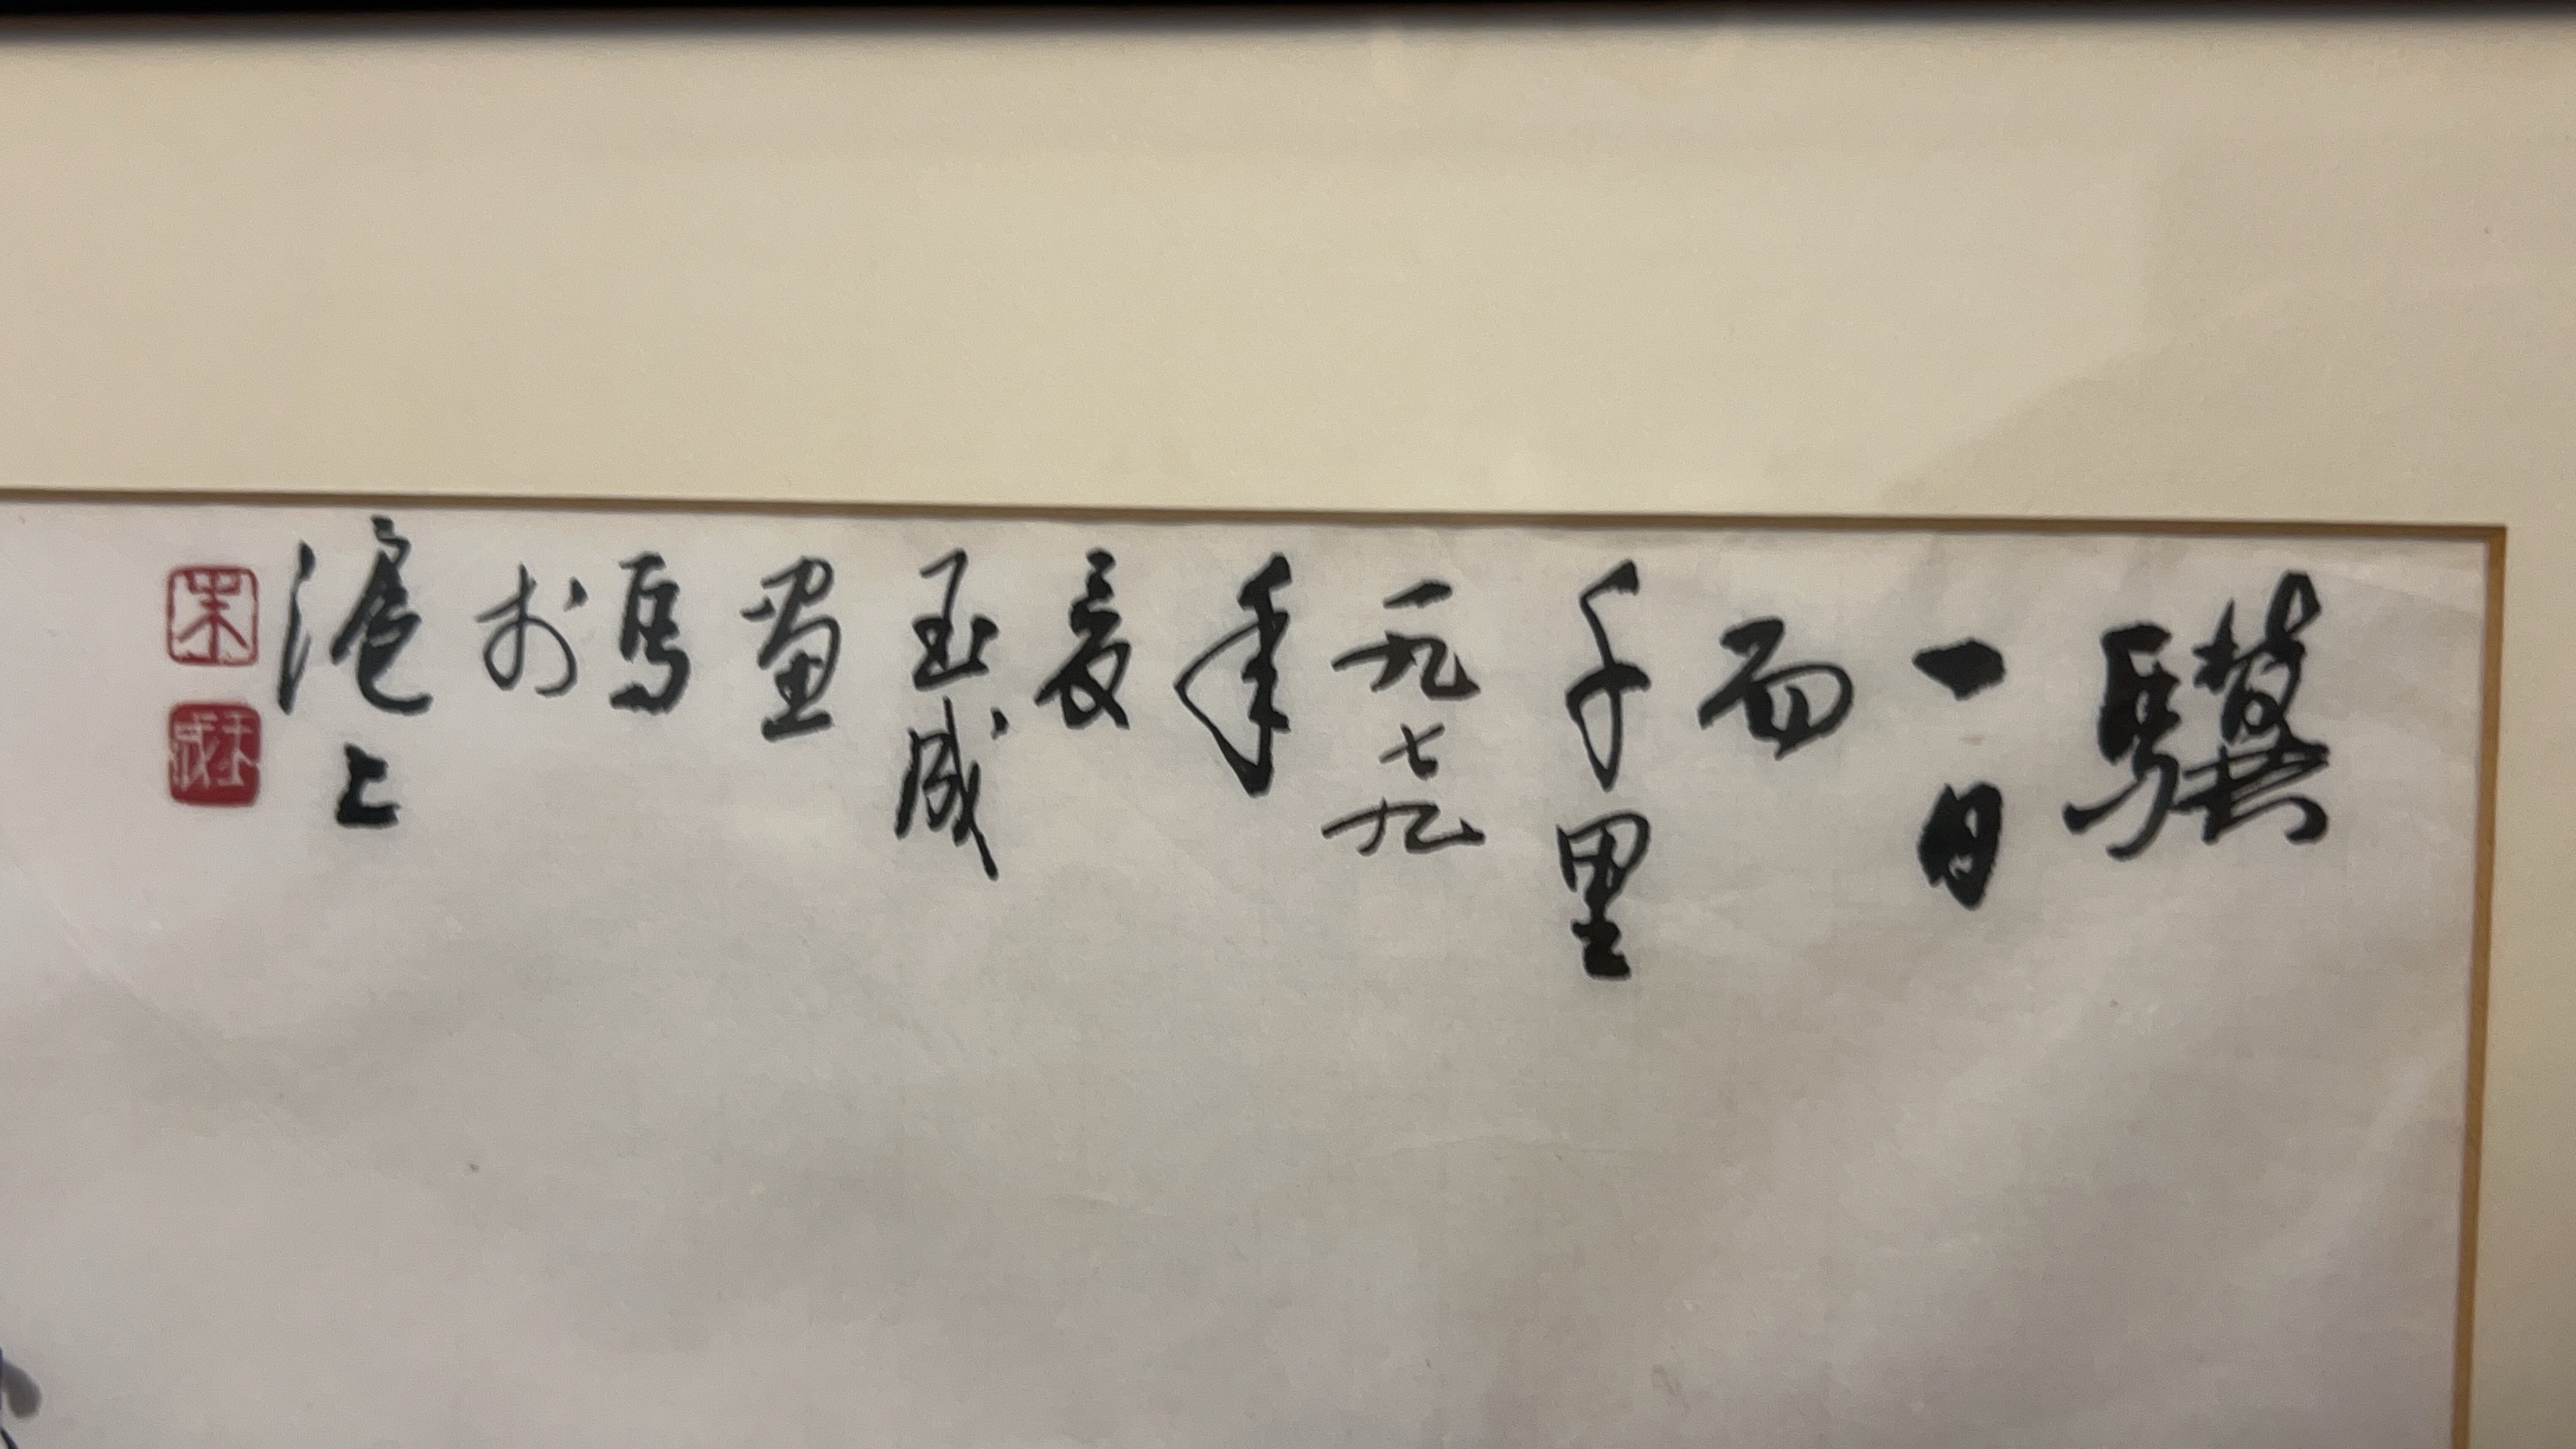 驥
一日
而
千里
一九七九
年
夏
玉成
畫
馬
於
滬上
朱
玉成